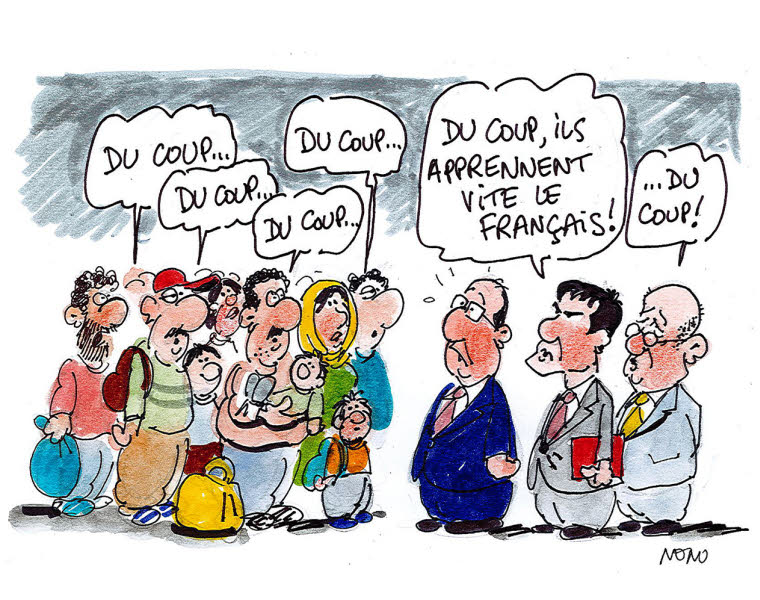 DU COUP...
DU COUP...
DU COUP...
DU COUP...
DU COUP, ILS
APPRENNENT
VITE LE
FRANÇAIS!
...DU
COUP!
NONO